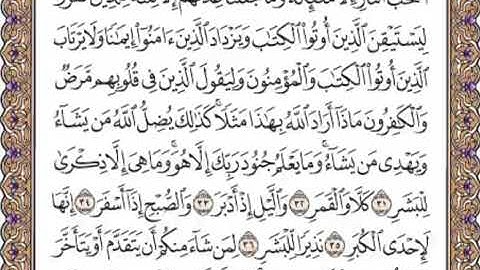 أَصْحَٰبَ ٱلنَّارِ إِلَّا مَلَٰٓئِكَةً وَمَا جَعَلْنَا عِدَّتَهُمْ إِلَّا فِتْنَةً لِّلَّذِينَ كَفَرُوا۟
لِيَسْتَيْقِنَ ٱلَّذِينَ أُوتُوا۟ ٱلْكِتَٰبَ وَيَزْدَادَ ٱلَّذِينَ ءَامَنُوٓا۟ إِيمَٰنًا وَلَا يَرْتَابَ
ٱلَّذِينَ أُوتُوا۟ ٱلْكِتَٰبَ وَٱلْمُؤْمِنُونَ وَلِيَقُولَ ٱلَّذِينَ فِى قُلُوبِهِم مَّرَضٌ
وَٱلْكَٰفِرُونَ مَاذَآ أَرَادَ ٱللَّهُ بِهَٰذَا مَثَلًا ۚ كَذَٰلِكَ يُضِلُّ ٱللَّهُ مَن يَشَآءُ
وَيَهْدِى مَن يَشَآءُ ۚ وَمَا يَعْلَمُ جُنُودَ رَبِّكَ إِلَّا هُوَ ۚ وَمَا هِىَ إِلَّا ذِكْرَىٰ
لِلْبَشَرِ ٣١ كَلَّا وَٱلْقَمَرِ ٣٢ وَٱلَّيْلِ إِذْ أَدْبَرَ ٣٣ وَٱلصُّبْحِ إِذَآ أَسْفَرَ ٣٤ إِنَّهَا
لَإِحْدَى ٱلْكُبَرِ ٣٥ نَذِيرًا لِّلْبَشَرِ ٣٦ لِمَن شَآءَ مِنكُمْ أَن يَتَقَدَّمَ أَوْ يَتَأَخَّرَ